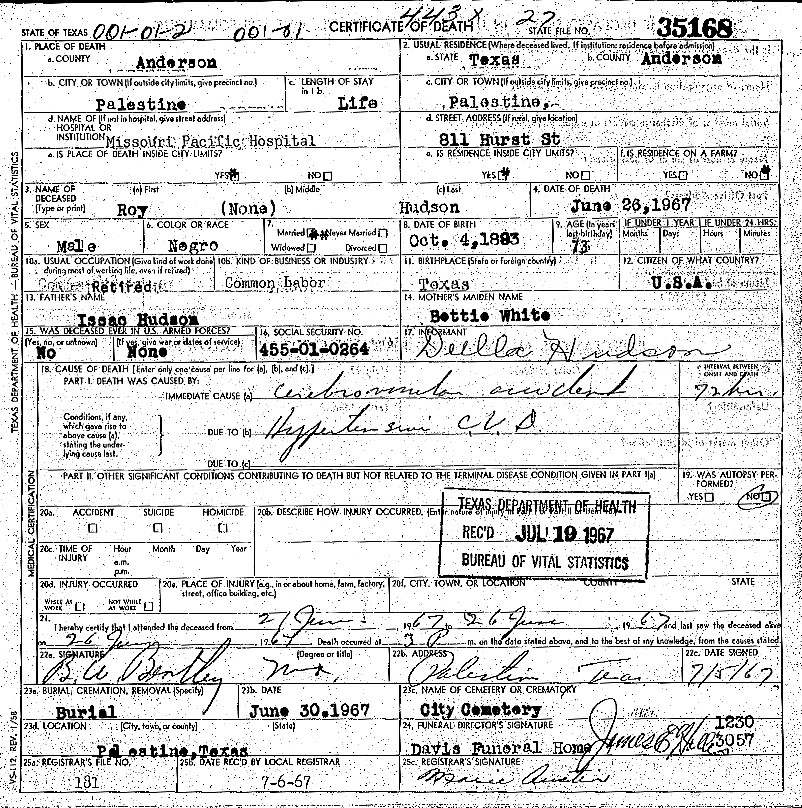 STATE OF TEXAS 001-01-2 001-01 CERTIFICATE OF DEATH 443X 27 STATE FILE NO. 35168
1. PLACE OF DEATH
a. COUNTY Anderson
2. USUAL RESIDENCE (Where deceased lived. If institution: residence before admission)
a. STATE Texas b. COUNTY Anderson
b. CITY OR TOWN (If outside city limits, give precinct no.) Palestine
c. LENGTH OF STAY in 1 b. Life
c. CITY OR TOWN (If outside city limits, give precinct no.) Palestine,
d. NAME OF (If not in hospital, give street address) HOSPITAL OR INSTITUTION Missouri Pacific Hospital
d. STREET ADDRESS (If rural, give location) 811 Hurst St
e. IS PLACE OF DEATH INSIDE CITY LIMITS? YES NO
e. IS RESIDENCE INSIDE CITY LIMITS? YES NO
f. IS RESIDENCE ON A FARM? YES NO
3. NAME OF DECEASED (Type or print) (a) First Roy (b) Middle (None) (c) Last Hudson
4. DATE OF DEATH June 26,1967
5. SEX Male
6. COLOR OR RACE Negro
7. Married Never Married Widowed Divorced
8. DATE OF BIRTH Oct. 4,1893
9. AGE (In years last birthday) 73
IF UNDER 1 YEAR Months Days
IF UNDER 24 HRS. Hours Minutes
10a. USUAL OCCUPATION (Give kind of work done during most of working life, even if retired) Retired
10b. KIND OF BUSINESS OR INDUSTRY Common Labor
11. BIRTHPLACE (State or foreign country) Texas
12. CITIZEN OF WHAT COUNTRY? U.S.A.
13. FATHER'S NAME Issac Hudson
14. MOTHER'S MAIDEN NAME Bettie White
15. WAS DECEASED EVER IN U.S. ARMED FORCES? (Yes, no, or unknown) No (If yes, give war or dates of service) None
16. SOCIAL SECURITY NO. 455-01-0264
17. INFORMANT Della Hudson
18. CAUSE OF DEATH [Enter only one cause per line for (a), (b), and (c).]
INTERVAL BETWEEN ONSET AND DEATH
PART I. DEATH WAS CAUSED BY:
IMMEDIATE CAUSE (a) cerebrovascular accident 72 hrs
Conditions, if any, which gave rise to above cause (a), stating the underlying cause last.
DUE TO (b) Hypertensive C.V.D
DUE TO (c)
PART II. OTHER SIGNIFICANT CONDITIONS CONTRIBUTING TO DEATH BUT NOT RELATED TO THE TERMINAL DISEASE CONDITION GIVEN IN PART I(a)
19. WAS AUTOPSY PERFORMED? YES NO
20a. ACCIDENT SUICIDE HOMICIDE
20b. DESCRIBE HOW INJURY OCCURRED.
TEXAS DEPARTMENT OF HEALTH
REC'D JUL 19 1967
BUREAU OF VITAL STATISTICS
20c. TIME OF INJURY Hour a.m. p.m. Month Day Year
20d. INJURY OCCURRED WHILE AT WORK NOT WHILE AT WORK
20e. PLACE OF INJURY (e.g., in or about home, farm, factory, street, office building, etc.)
20f. CITY, TOWN, OR LOCATION COUNTY STATE
21. I hereby certify that I attended the deceased from 21 June 1967 to 26 June 1967 and last saw the deceased alive
on 26 June 1967 Death occurred at 3 P m. on the date stated above, and to the best of my knowledge, from the causes stated.
22a. SIGNATURE B.W. Bentley (Degree or title) M.D.
22b. ADDRESS Palestine Texas
22c. DATE SIGNED 7/5/67
23a. BURIAL, CREMATION, REMOVAL (Specify) Burial
23b. DATE June 30,1967
23c. NAME OF CEMETERY OR CREMATORY City Cemetery
23d. LOCATION (City, town, or county) (State) Palestine,Texas
24. FUNERAL DIRECTOR'S SIGNATURE Davis Funeral Home 1230 3057
25a. REGISTRAR'S FILE NO. 181
25b. DATE REC'D BY LOCAL REGISTRAR 7-6-67
25c. REGISTRAR'S SIGNATURE Marie Austin
TEXAS DEPARTMENT OF HEALTH — BUREAU OF VITAL STATISTICS
MEDICAL CERTIFICATION
VS-112 REV. 1/58